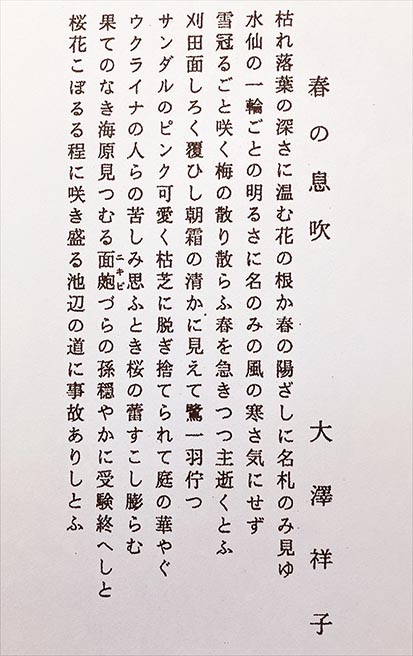 春の息吹　　大澤祥子
枯れ落葉の深さに温む花の根か春の陽ざしに名札のみ見ゆ
水仙の一輪ごとの明るさに名のみの風の寒さ気にせず
雪冠るごと咲く梅の散り散らふ春を急きつつ主逝くとふ
刈田面しろく覆ひし朝霜の清かに見えて鷺一羽佇つ
サンダルのピンク可愛く枯芝に脱ぎ捨てられて庭の華やぐ
ウクライナの人らの苦しみ思ふとき桜の蕾すこし膨らむ
果てのなき海原見つむる面皰づらの孫穏やかに受験終へしと
ニキビ
桜花こぼるる程に咲き盛る池辺の道に事故ありしとふ